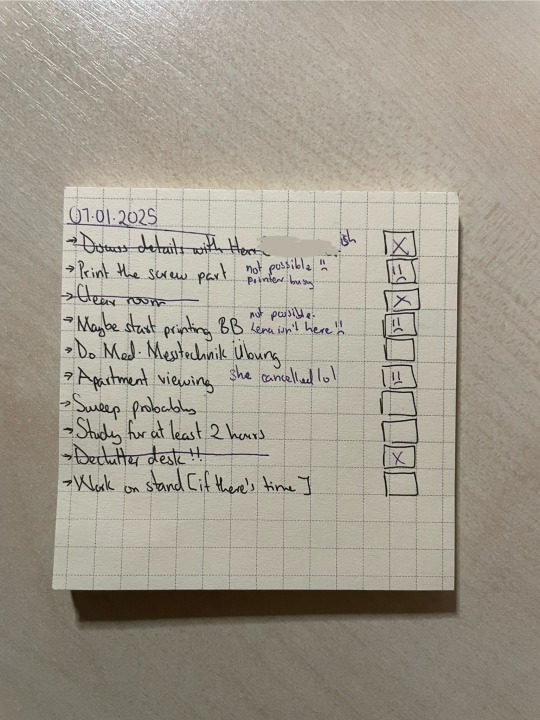 07.01.2025
→ Discuss details with Herr ish
→ Print the screw part not possible !! printer busy
→ Clear room
→ Maybe start printing BB not possible. Lena isn't here !!
→ Do Med. Messtechnik Übung
→ Apartment viewing she cancelled lol
→ Sweep probably
→ Study for at least 2 hours
→ Declutter desk !!
→ Work on stand [if there's time]